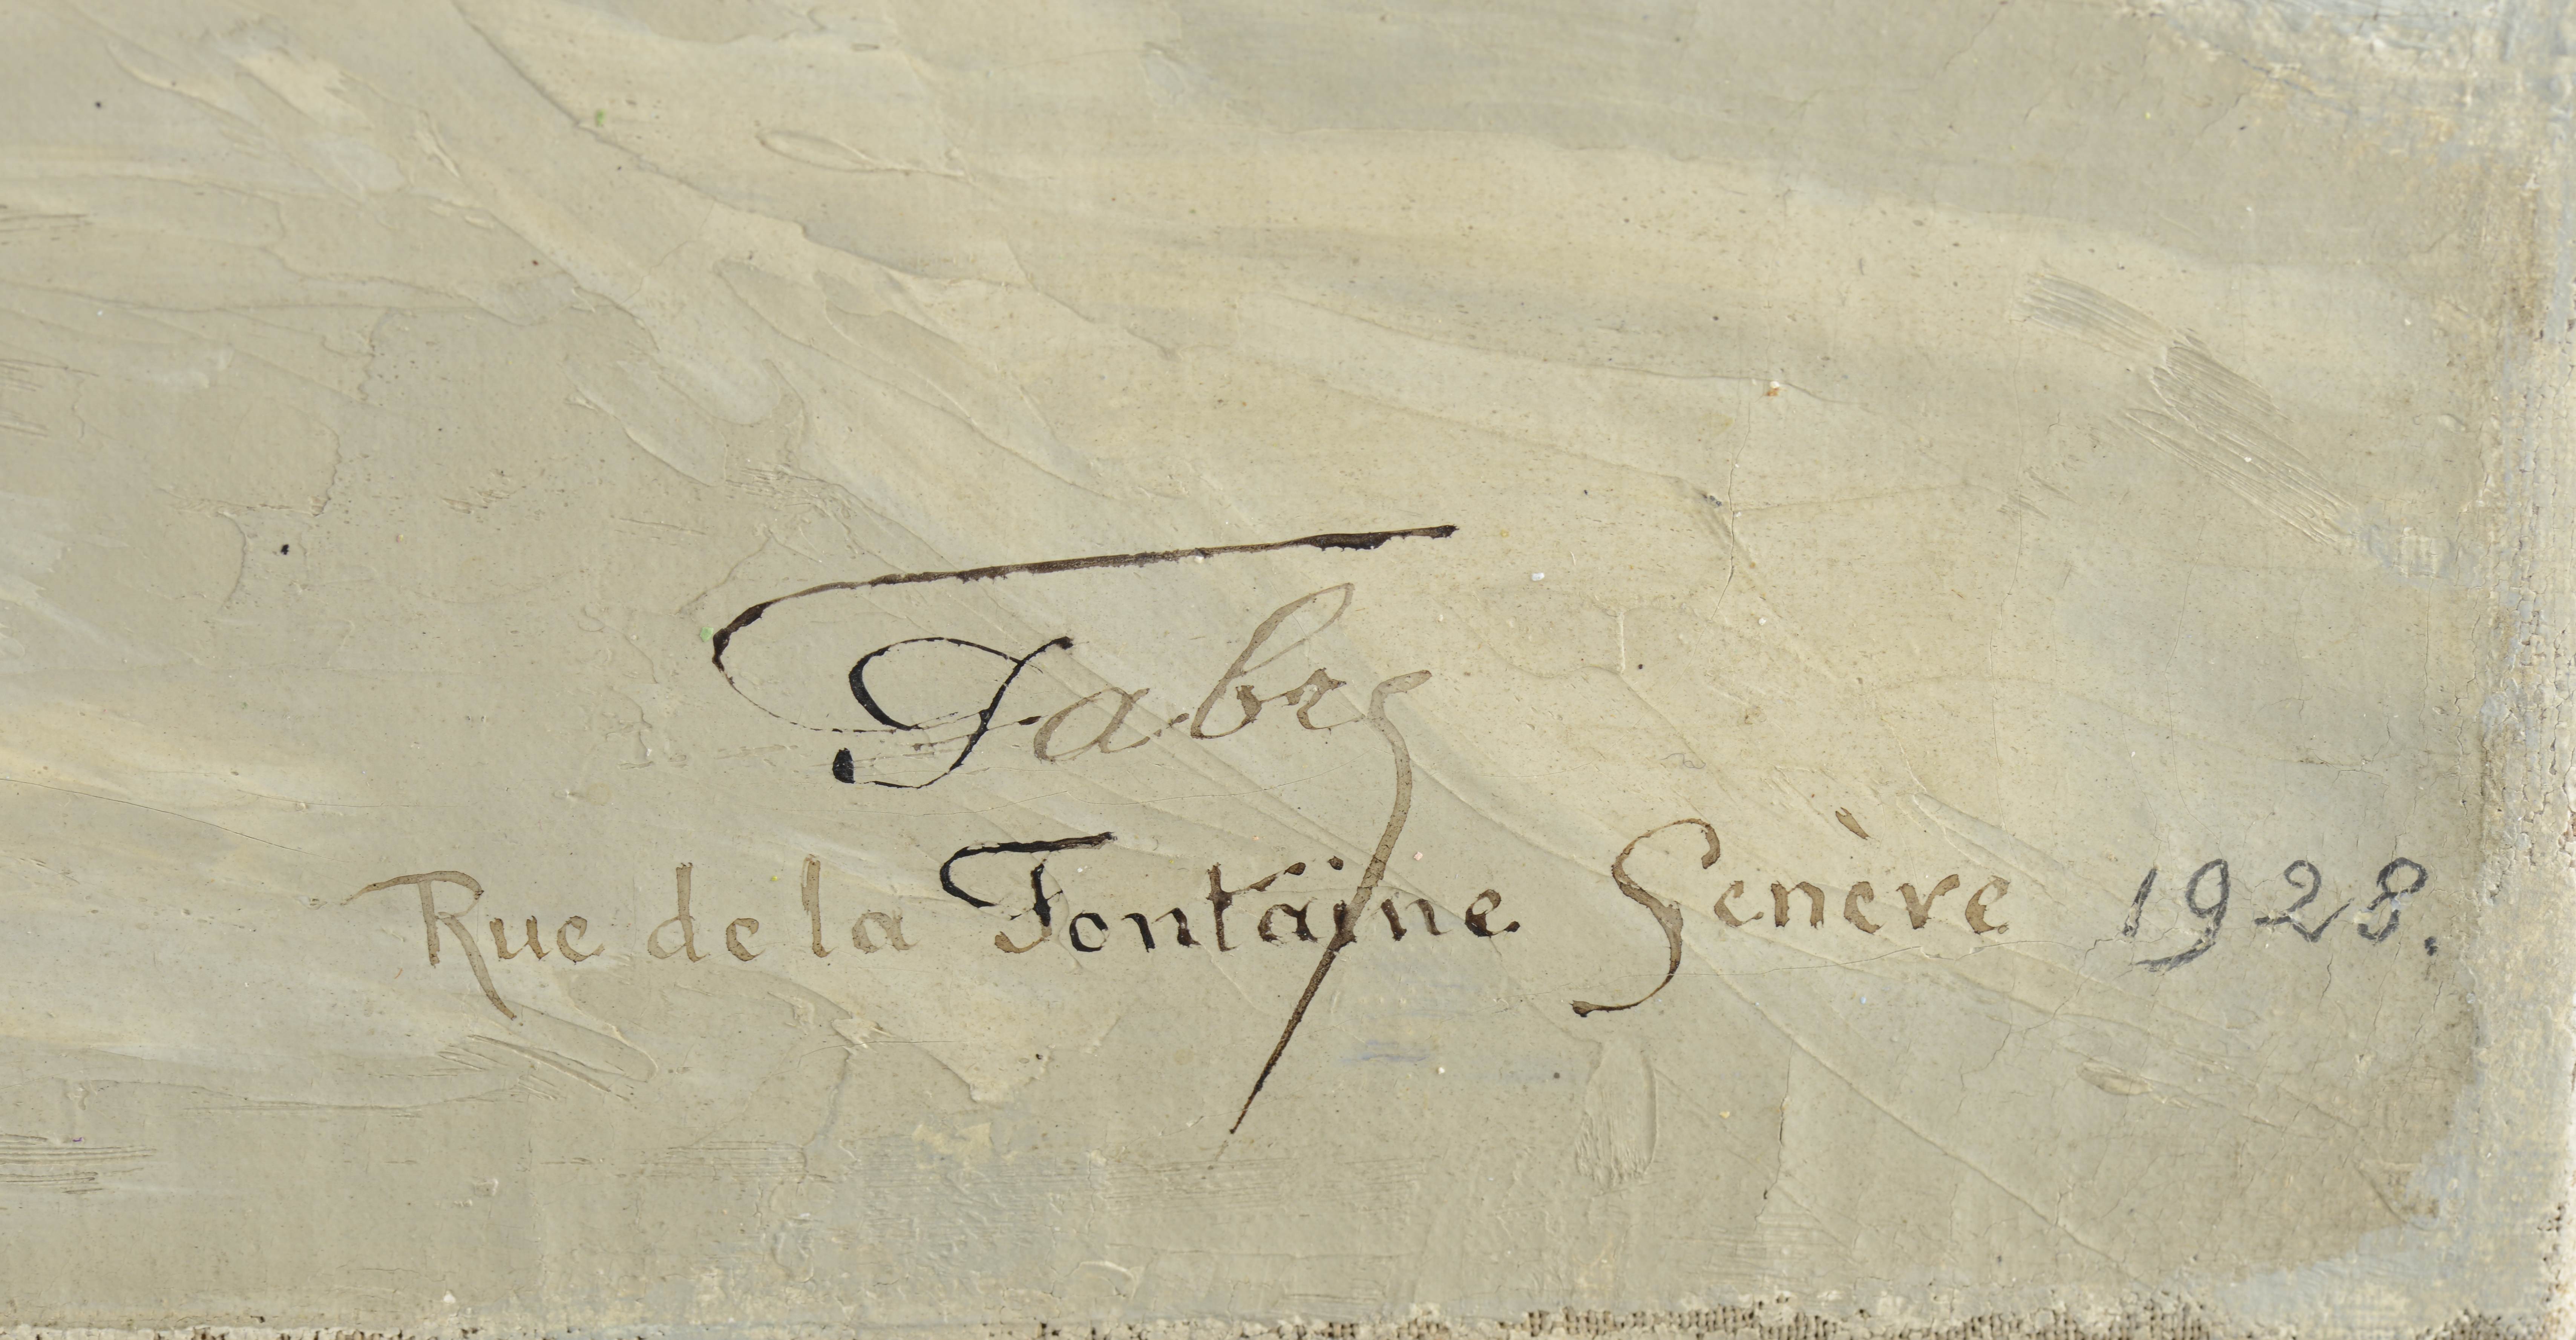 Fabre
Rue de la Fontaine Genève 1928.